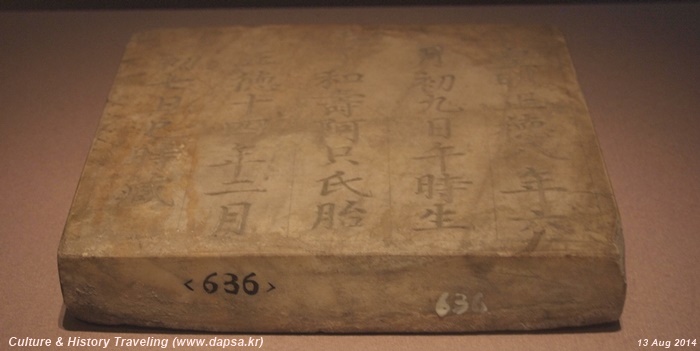 皇明正德八年六
月初九日午時生
和壽阿只氏胎
正德十四年十二月
七日時藏
<636>
636
Culture & History Traveling (www.dapsa.kr)
13 Aug 2014